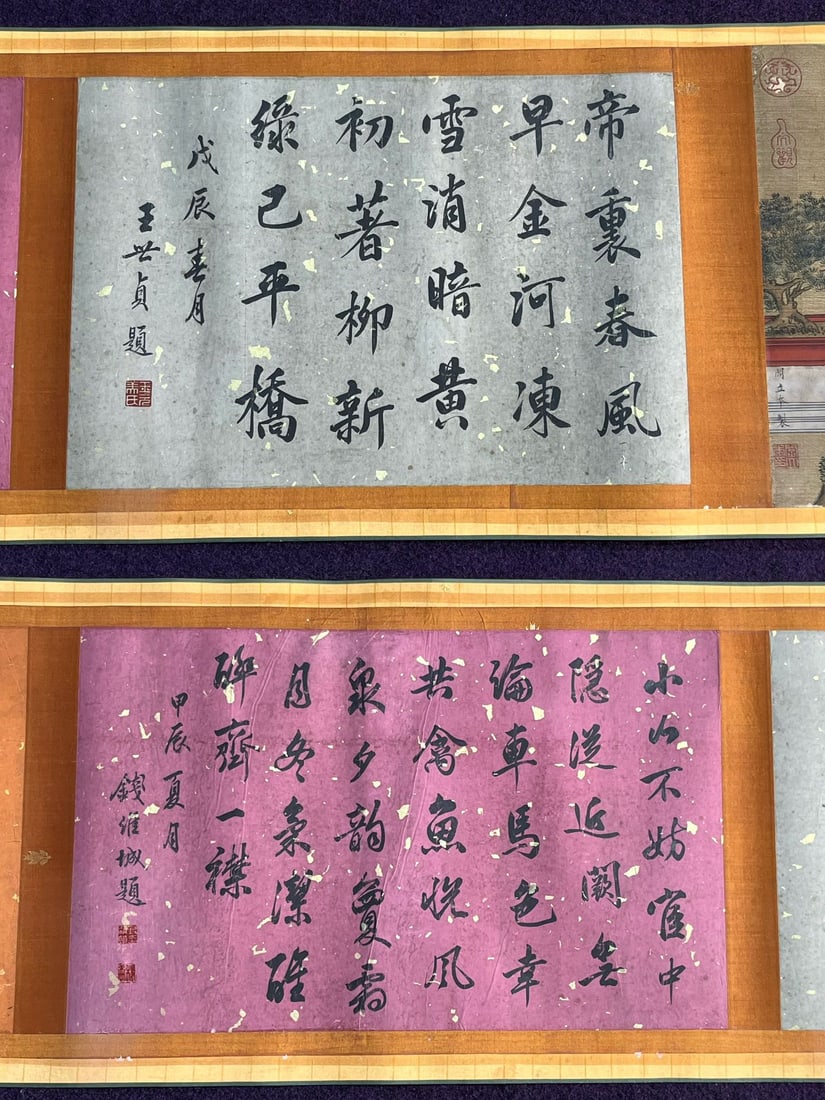 閻立本製
帝裏春風
早金河凍
雪消暗黄
初著柳新
綠已平橋
戊辰春月
王世貞題
小山不妨宦中
隱從近闕無
論車馬色幸
共禽魚悦風
泉夕韵夐霜
月冬氣潔醒
醉齊一襟
甲辰夏月
錢維城題